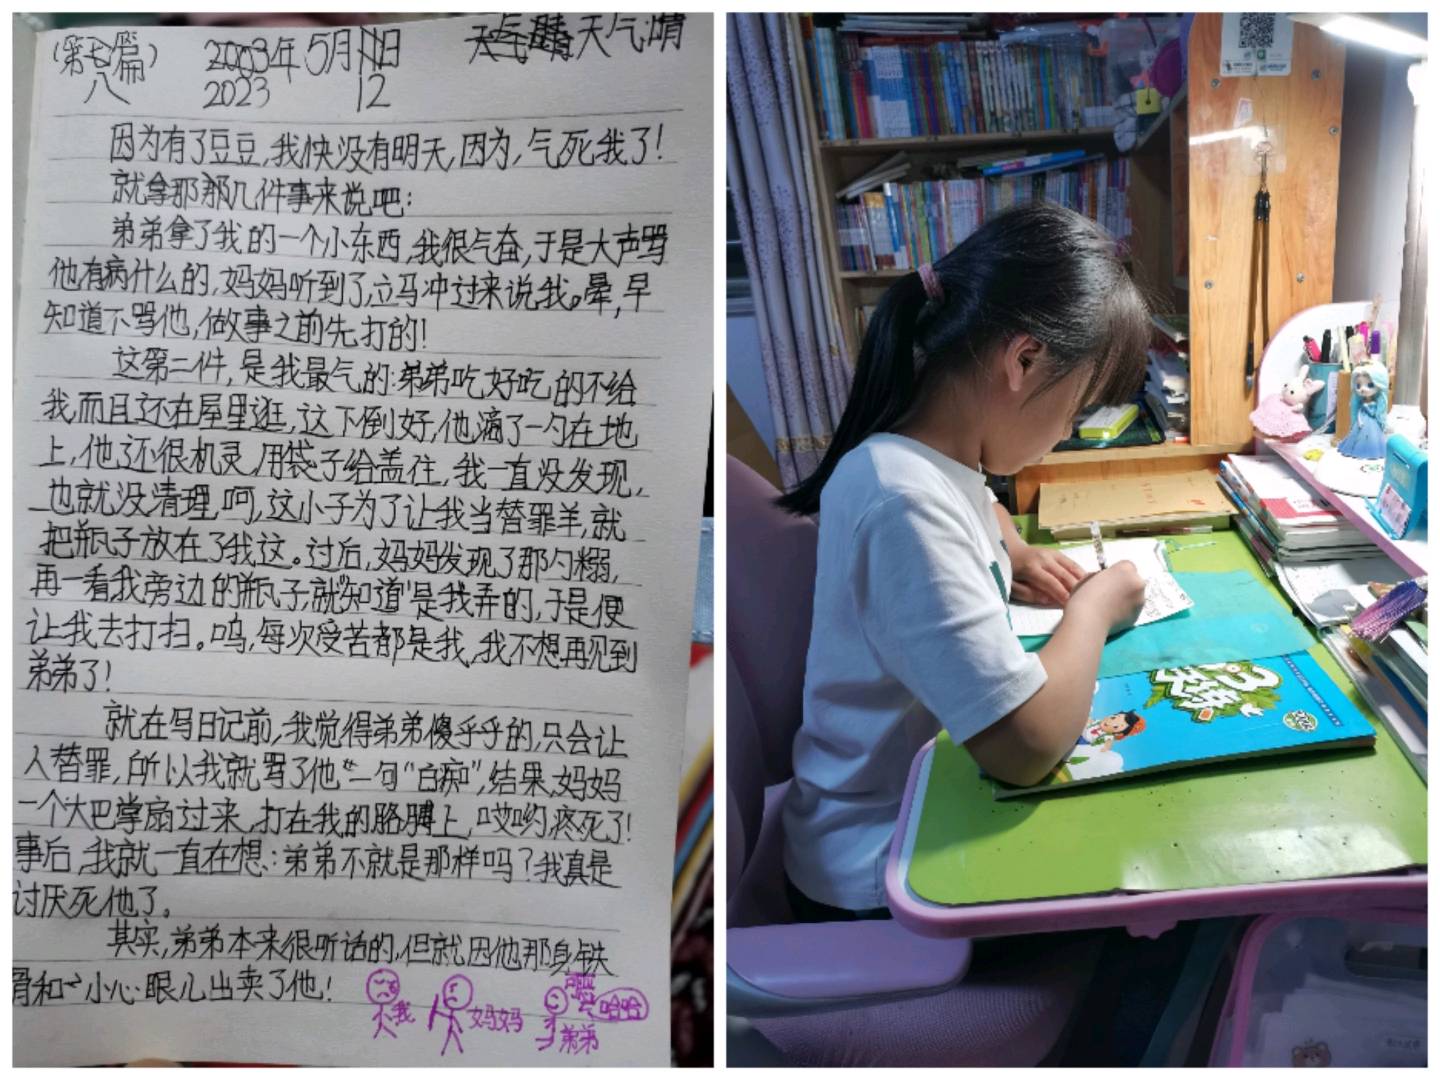 (第七篇) 2003年5月11日 天气晴 天气:晴
八 2023 12
因为有了豆豆,我快没有明天,因为,气死我了!
就拿那那几件事来说吧:
弟弟拿了我的一个小东西,我很气奋,于是大声骂
他有病什么的,妈妈听到了,立马冲过来说我。晕,早
知道不骂他,做事之前先打的!
这第二件,是我最气的:弟弟吃好吃的不给
我,而且还在屋里逛,这下倒好,他滴了一勺在地
上,他还很机灵,用袋子给盖住,我一直没发现,
也就没清理,呵,这小子为了让我当替罪羊,就
把瓶子放在了我这。过后,妈妈发现了那勺糊,
再一看我旁边的瓶子,就“知道”是我弄的,于是便
让我去打扫。呜,每次受苦都是我,我不想再见到
弟弟了!
就在写日记前,我觉得弟弟傻乎乎的,只会让
人替罪,所以我就骂了他“一句“白痴”,结果,妈妈
一个大巴掌扇过来,打在我的胳膊上,哎哟,疼死了!
事后,我就一直在想:弟弟不就是那样吗?我真是
讨厌死他了。
其实,弟弟本来很听话的,但就因他那身铁
骨和小心眼儿出卖了他!
我 妈妈 弟弟 哈哈